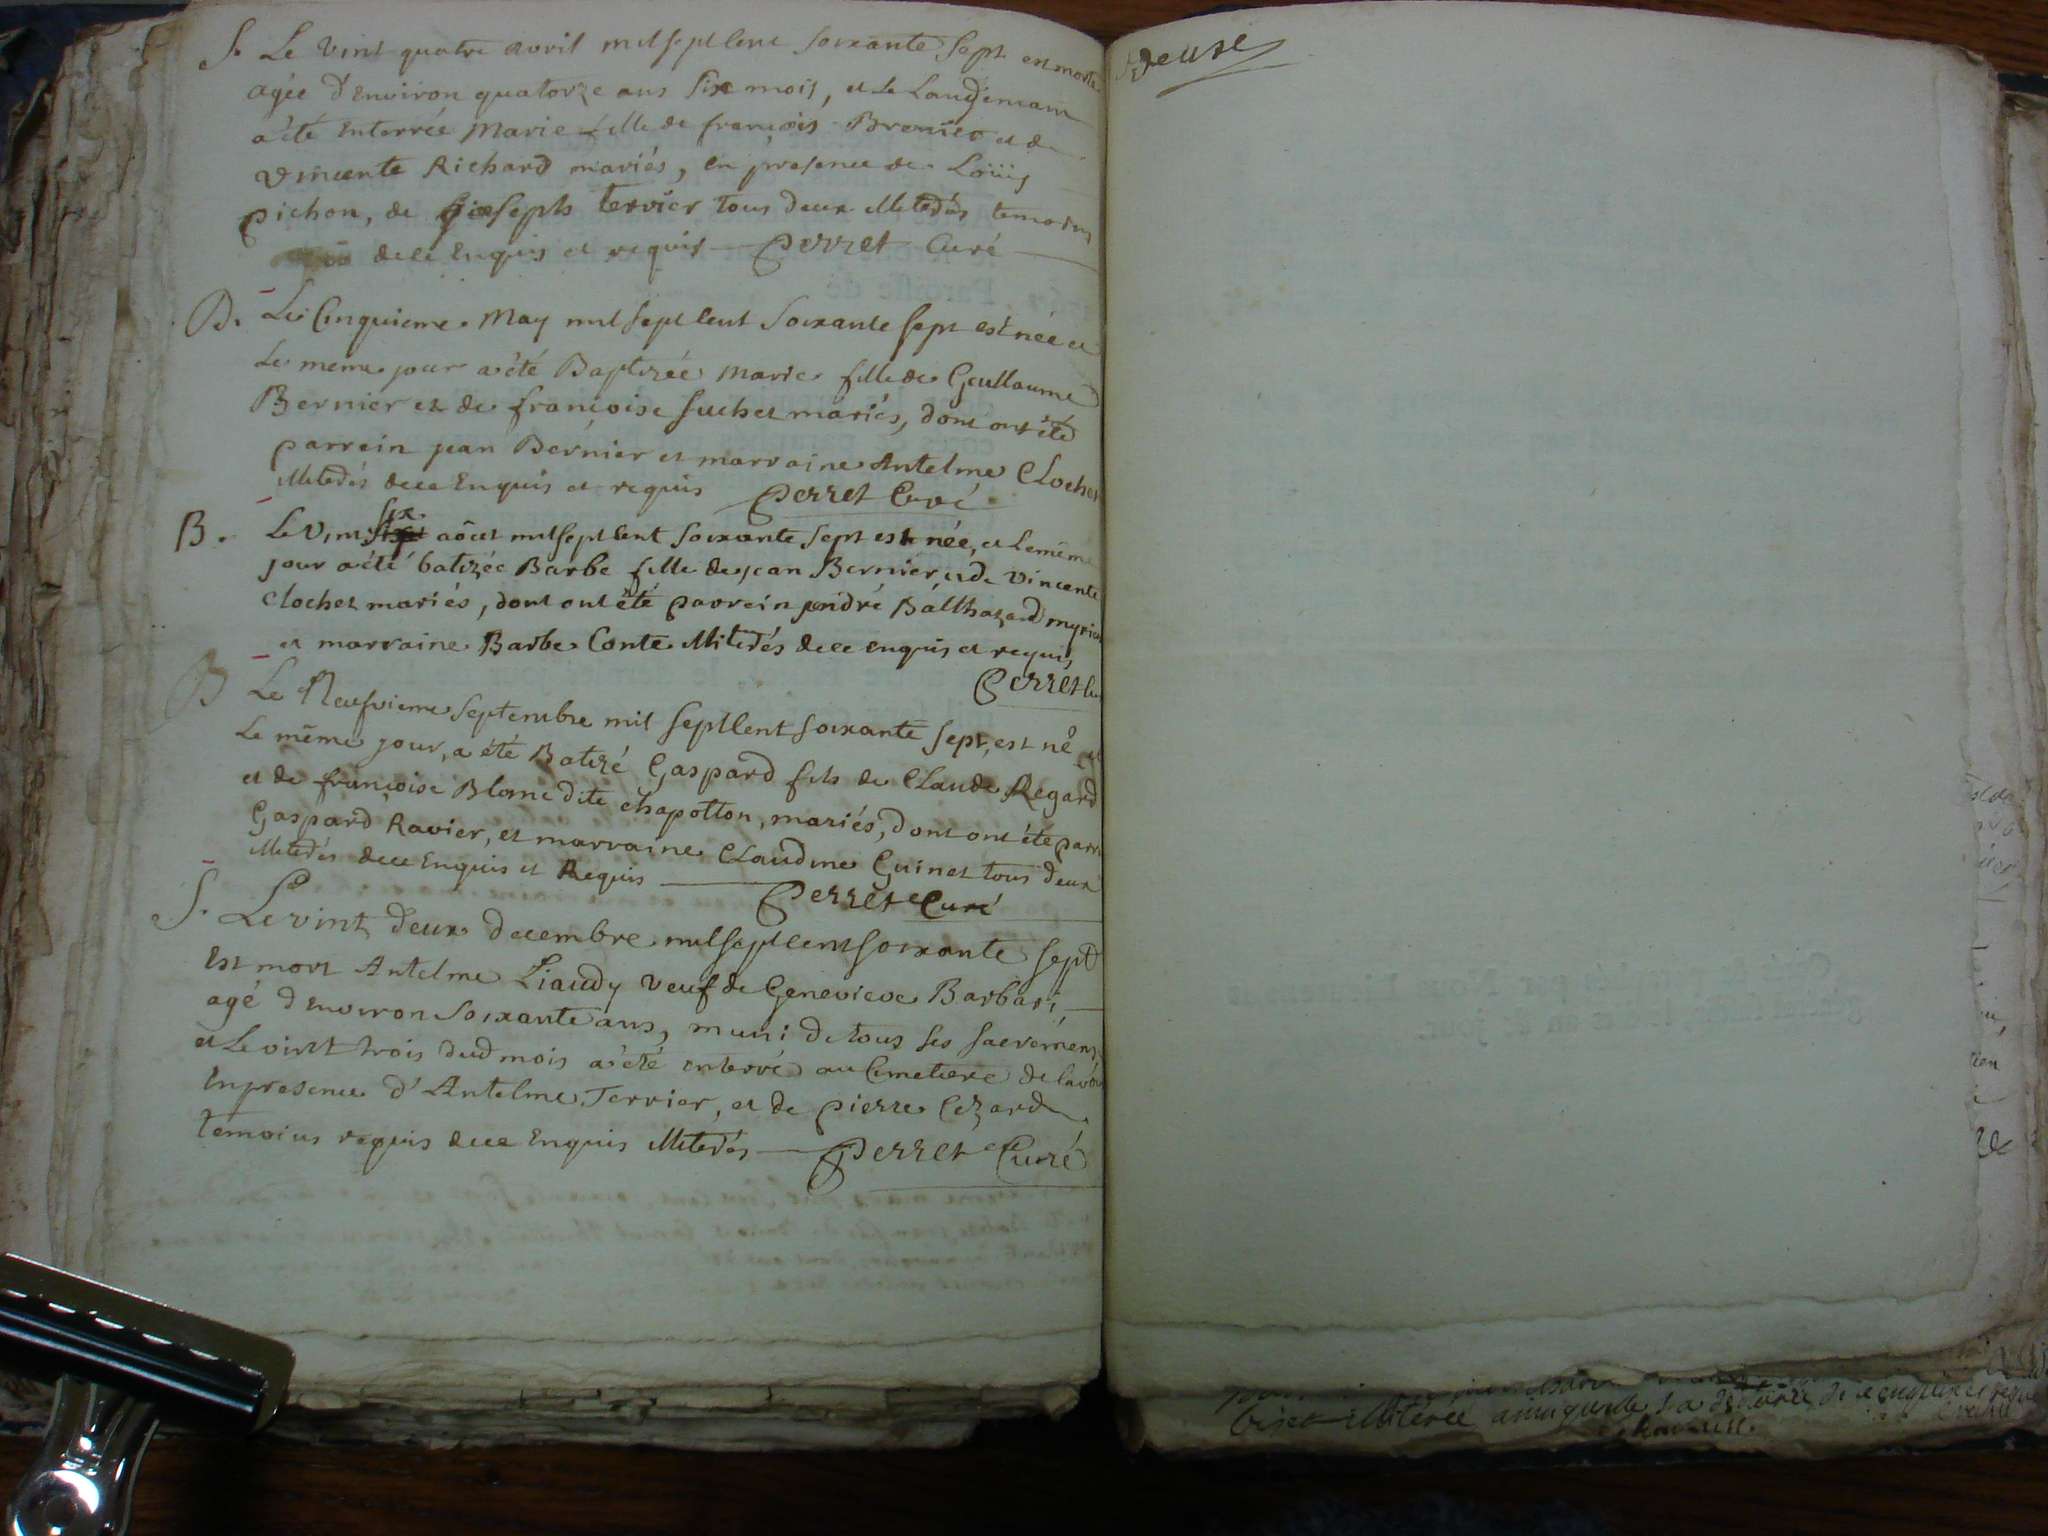 S. Le vint quatre avril milsept Cent soixante sept est morte
agée d'Environ quatorze ans six mois, et le Landemain
a été Enterrée Marie fille de françois Brenier et de
vincente Richard mariés, en presence de Loüis
pichon, de Joseph Tervier tous deux illiterés temoins
dece Enquis et requis Perret Curé
B. Le Cinquieme May mil sept Cent soixante sept est née et
Le meme jour a été Baptizée Marie fille de Guillaume
Bernier et de françoise suchet mariés, dont ont été
parrein jean Bernier et marraine Antelme Clochet
illiterés dece Enquis et requis Perret Curé
six
B. Le Vint aôut milsept Cent soixante sept est née, et le même
jour a été batizée Barbe fille de jean Bernier, et de vincente
clochet mariés, dont ont été parrein andré Balthazard
et marraine Barbe Conte illiterés dece enquis et requis
Perret Cu
B Le Neufvieme septembre mil sept Cent soixante sept, est né et
Le même jour, a été Batizé Gaspard fils de Claude Regard
et de françoise Blanc dite chapotton, mariés, dont ont été parr
Gaspard Ravier, et marraine Claudine Guinet tous deux
illiterés dece Enquis et Requis Perret Curé
S. Le vint deux decembre mil sept cent soixante sept
Est mort Antelme Liaudy veuf de Genevieve Barbari,
agé d'Environ soixante ans, muni de tous ses sacremens
et Le vint trois dud mois a été enterré au Cimetiere de
Enpresence d'Antelme Terrier, et de pierre Cezard
temoins requis dece Enquis illiterés Perret Curé
illiterée